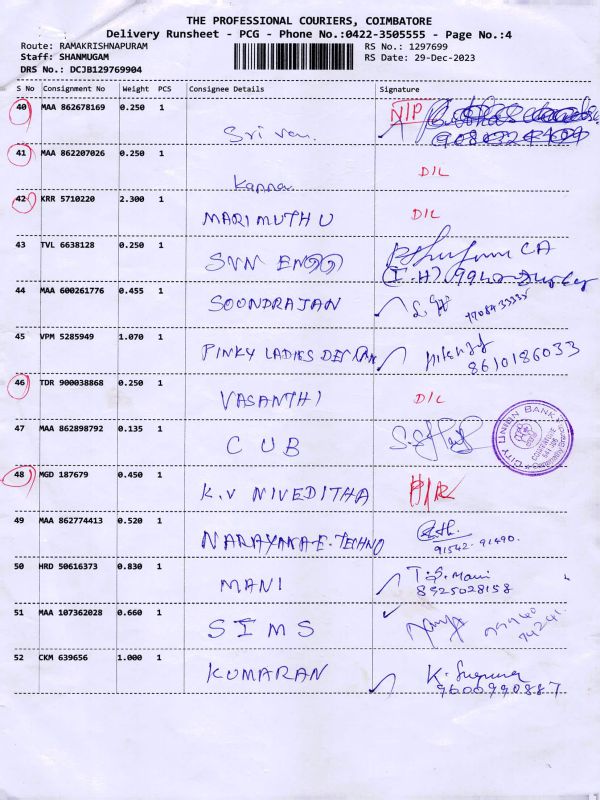 THE PROFESSIONAL COURIERS, COIMBATORE
Delivery Runsheet - PCG - Phone No.:0422-3505555 - Page No.:4
Route: RAMAKRISHNAPURAM RS No.: 1297699
Staff: SHANMUGAM RS Date: 29-Dec-2023
DRS No.: DCJB129769904
S No Consignment No Weight PCS Consignee Details Signature
40 MAA 862678169 0.250 1 N/P
41 MAA 862207026 0.250 1 D/L
Kanna
42 KRR 5710220 2.300 1 D/L
MARIMUTHU
43 TVL 6638128 0.250 1
SNN
44 MAA 600261776 0.455 1
SOONDRAJAN
45 VPM 5285949 1.070 1
PINKY LADIES 8610186033
46 TDR 900038868 0.250 1 D/L
VASANTHI
47 MAA 862898792 0.135 1 CITY UNION BANK
CUB
48 MGD 187679 0.450 1
K.V NIVEDITHA
49 MAA 862774413 0.520 1
91542-91490.
50 HRD 50616373 0.830 1 T.S. Mani
MANI 8925028158
51 MAA 107362028 0.660 1
SIMS
52 CKM 639656 1.000 1
KUMARAN 9600990887